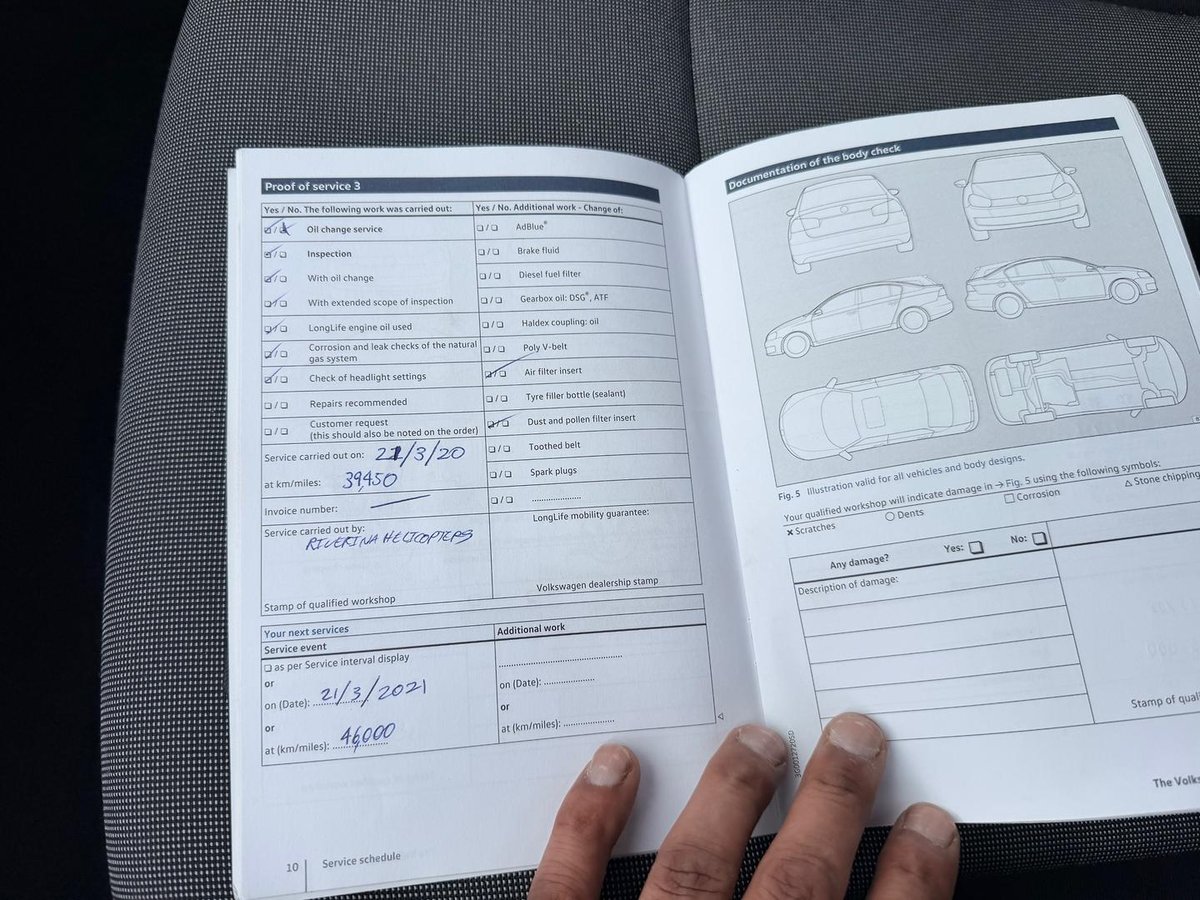 Proof of service 3
Yes / No. The following work was carried out:
Oil change service
Inspection
With oil change
With extended scope of inspection
LongLife engine oil used
Corrosion and leak checks of the natural
gas system
Check of headlight settings
Repairs recommended
Customer request
(this should also be noted on the order)
Service carried out on: 21/3/20
at km/miles: 39,450
Invoice number:
Service carried out by:
RIVERINA HELICOPTERS
Stamp of qualified workshop
Yes / No. Additional work - Change of:
AdBlue®
Brake fluid
Diesel fuel filter
Gearbox oil: DSG®, ATF
Haldex coupling: oil
Poly V-belt
Air filter insert
Tyre filler bottle (sealant)
Dust and pollen filter insert
Toothed belt
Spark plugs
LongLife mobility guarantee:
Volkswagen dealership stamp
Your next services
Service event
as per Service interval display
or
on (Date): 21/3/2021
or
at (km/miles): 46,000
Additional work
on (Date):
or
at (km/miles):
10 Service schedule
Documentation of the body check
Fig. 5 Illustration valid for all vehicles and body designs.
Your qualified workshop will indicate damage in → Fig. 5 using the following symbols:
× Scratches ○ Dents □ Corrosion △ Stone chipping
Any damage? Yes: No:
Description of damage:
Stamp of quali
The Volks